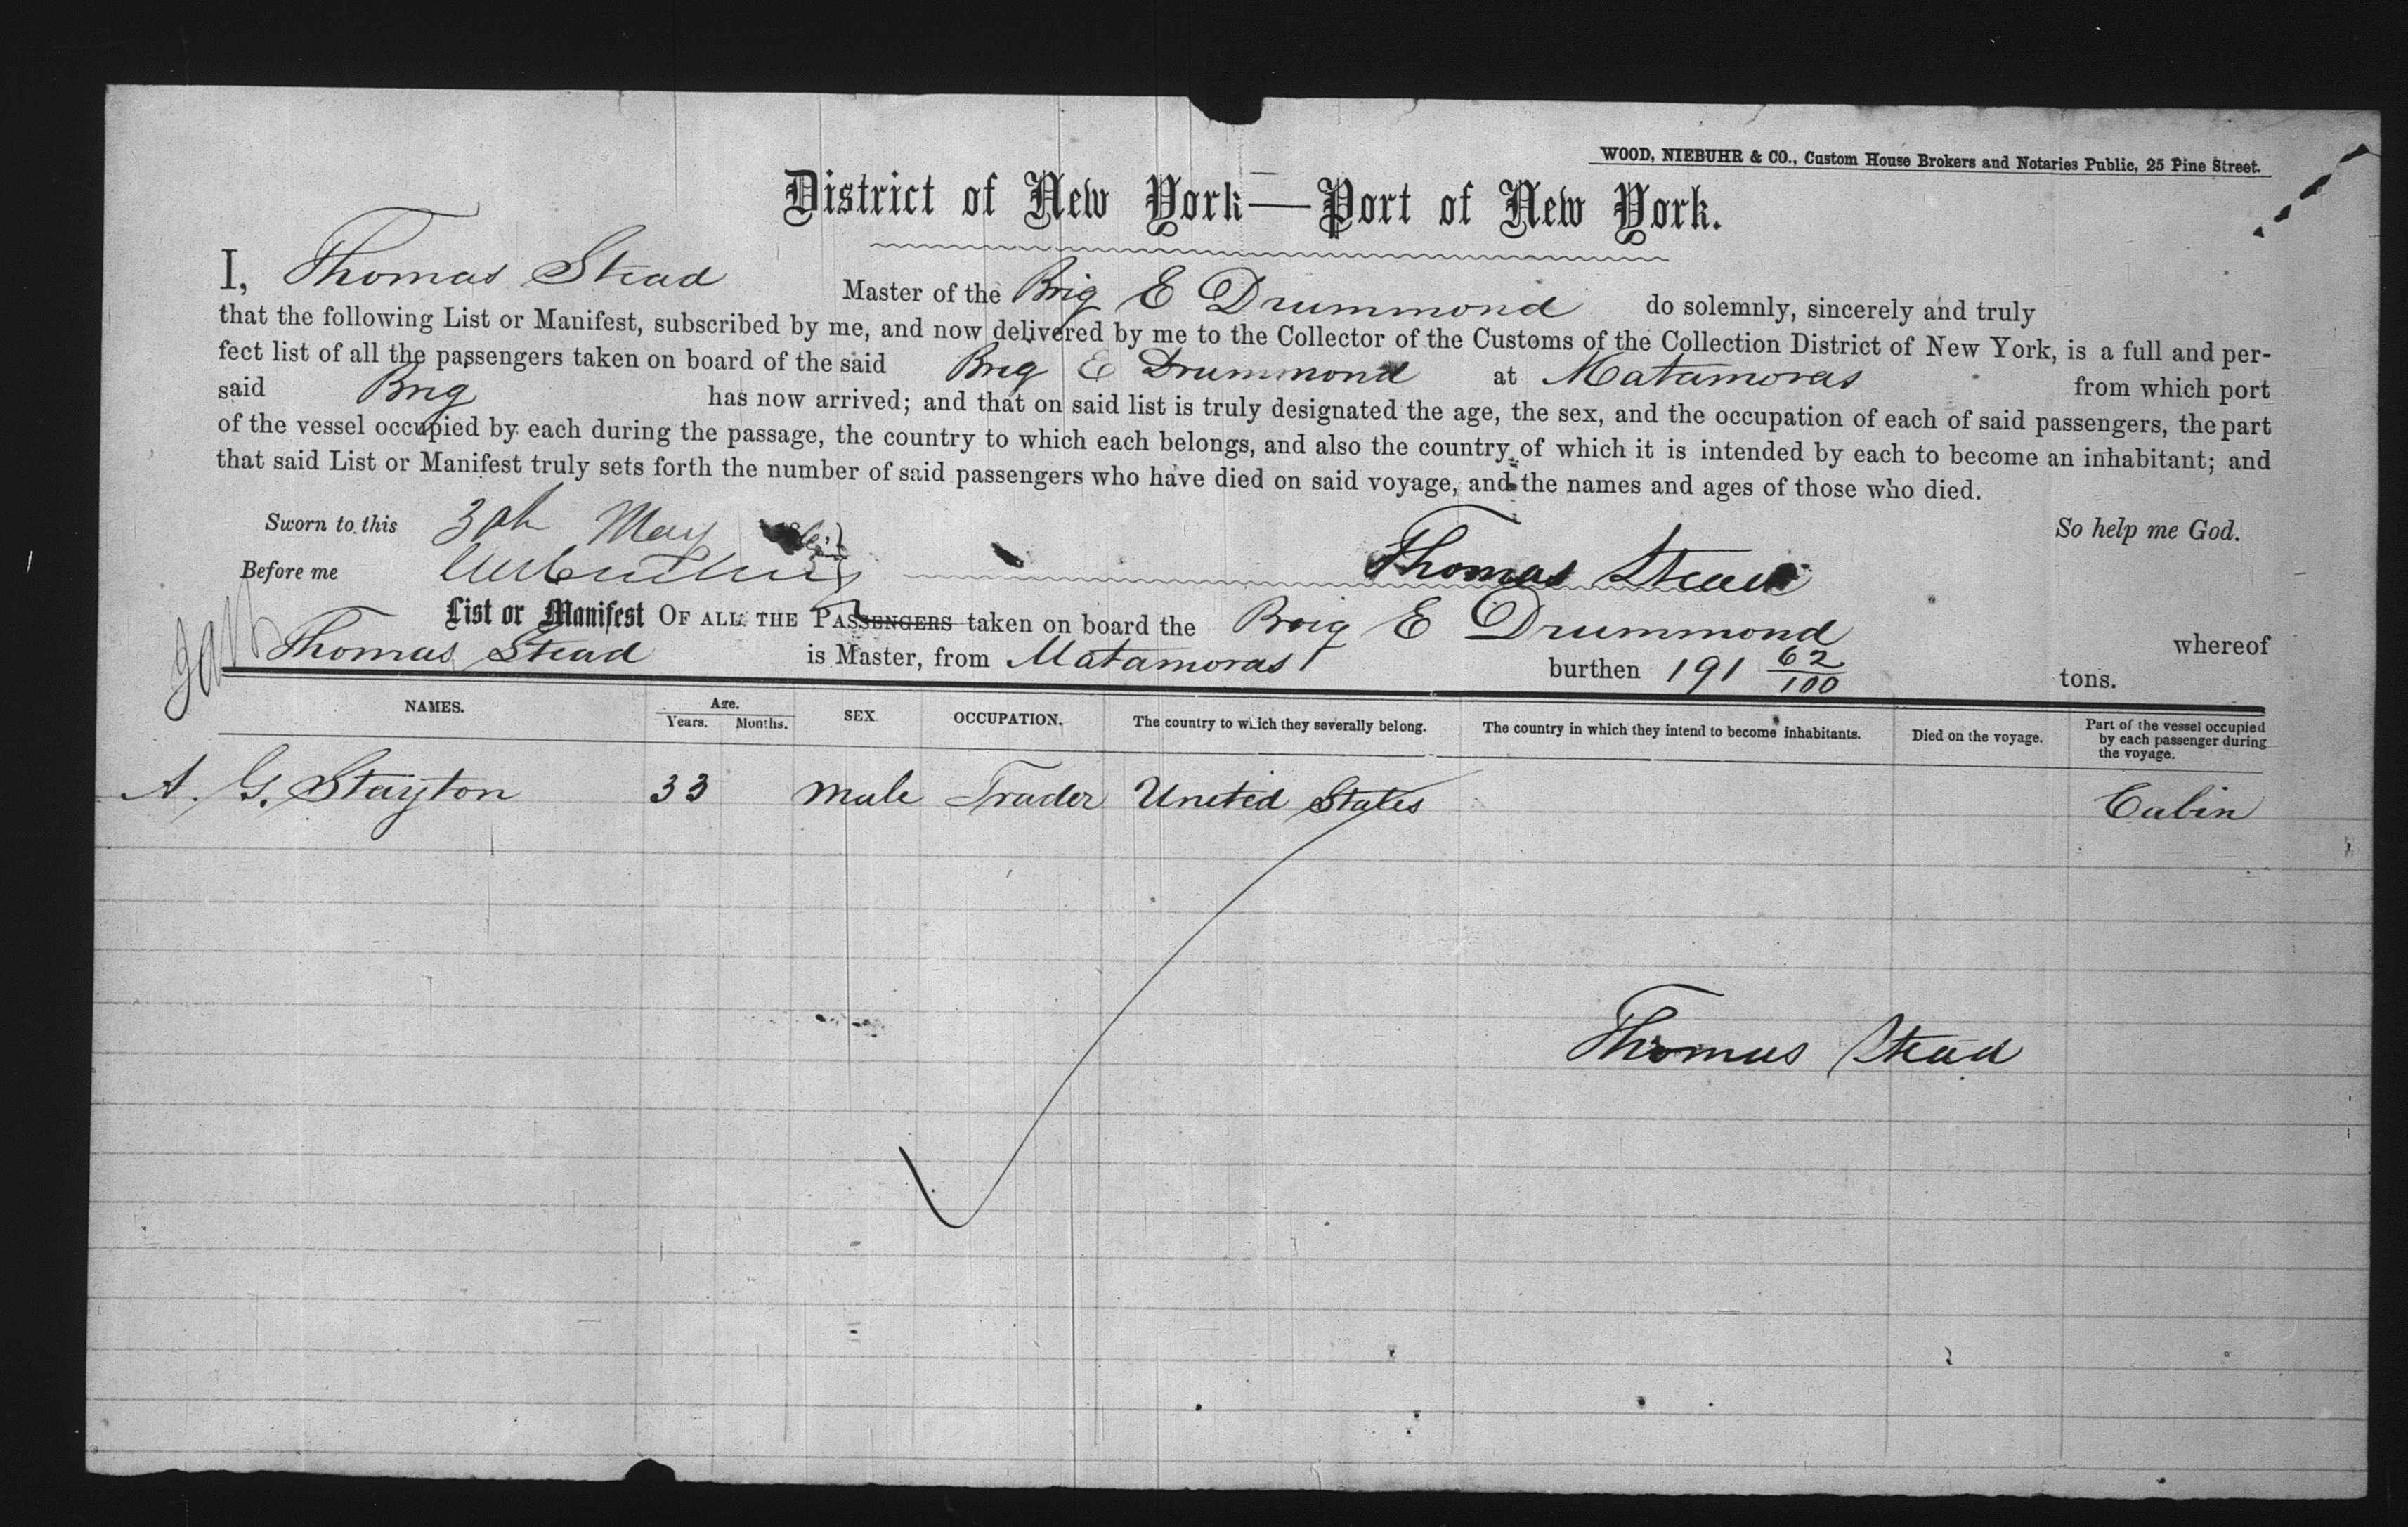 WOOD, NIEBUHR & CO., Custom House Brokers and Notaries Public, 25 Pine Street.
District of New York—Port of New York.
I, Thomas Stead Master of the Brig E Drummond do solemnly, sincerely and truly
that the following List or Manifest, subscribed by me, and now delivered by me to the Collector of the Customs of the Collection District of New York, is a full and per-
fect list of all the passengers taken on board of the said Brig E Drummond at Matamoras from which port
said Brig has now arrived; and that on said list is truly designated the age, the sex, and the occupation of each of said passengers, the part
of the vessel occupied by each during the passage, the country to which each belongs, and also the country of which it is intended by each to become an inhabitant; and
that said List or Manifest truly sets forth the number of said passengers who have died on said voyage, and the names and ages of those who died.
Sworn to this May So help me God.
Before me Thomas Stead
List or Manifest OF ALL THE PASSENGERS taken on board the Brig E Drummond whereof
Thomas Stead is Master, from Matamoras burthen 191 62/100 tons.
NAMES. Age. Years. Months. SEX. OCCUPATION. The country to which they severally belong. The country in which they intend to become inhabitants. Died on the voyage. Part of the vessel occupied by each passenger during the voyage.
A. G. Stayton 33 Male Trader United States Cabin
Thomas Stead